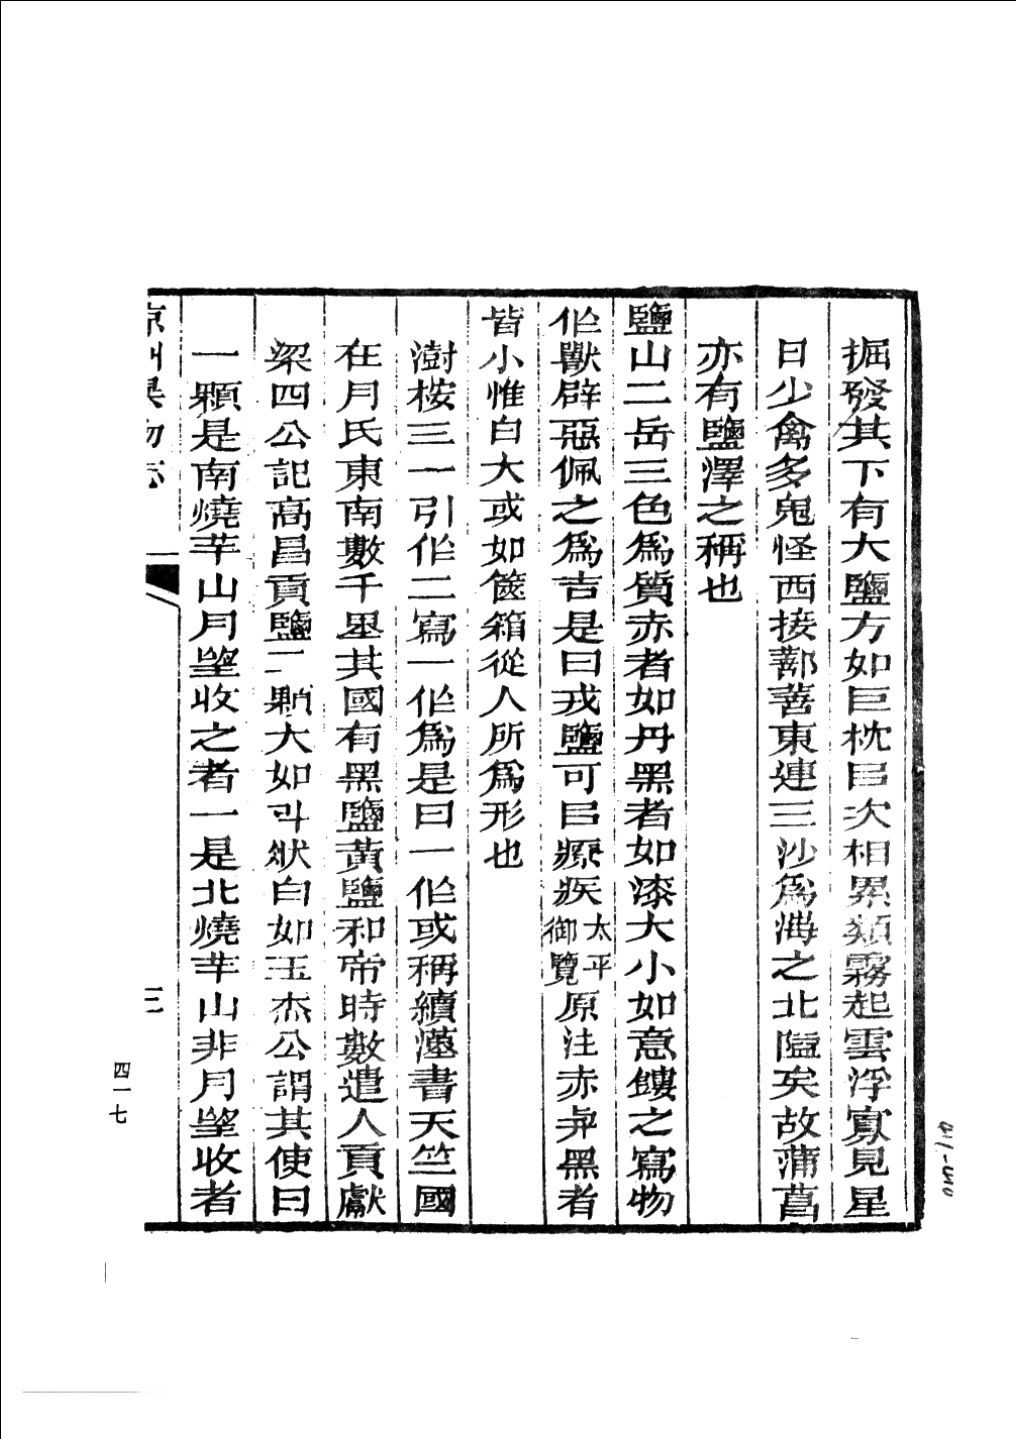 掘發其下有大鹽方如巨枕㠯次相累類霧起雲浮寡見星
日少禽多鬼怪西接鄯善東連三沙爲海之北隘矣故蒲菖
亦有鹽澤之稱也
鹽山二岳三色爲質赤者如丹黑者如漆大小如意鏤之寫物
作獸辟惡佩之爲吉是曰戎鹽可㠯療疾太平御覽原注赤與黑者
皆小惟白大或如篋箱從人所爲形也
澍桉三一引作二寫一作爲是曰一作或稱續漢書天竺國
在月氏東南數千里其國有黑鹽黃鹽和帝時數遣人貢獻
梁四公記高昌貢鹽二顆大如斗狀白如玉杰公謂其使曰
一顆是南燒羊山月望收之者一是北燒羊山非月望收者
涼州異物志
三
四一七